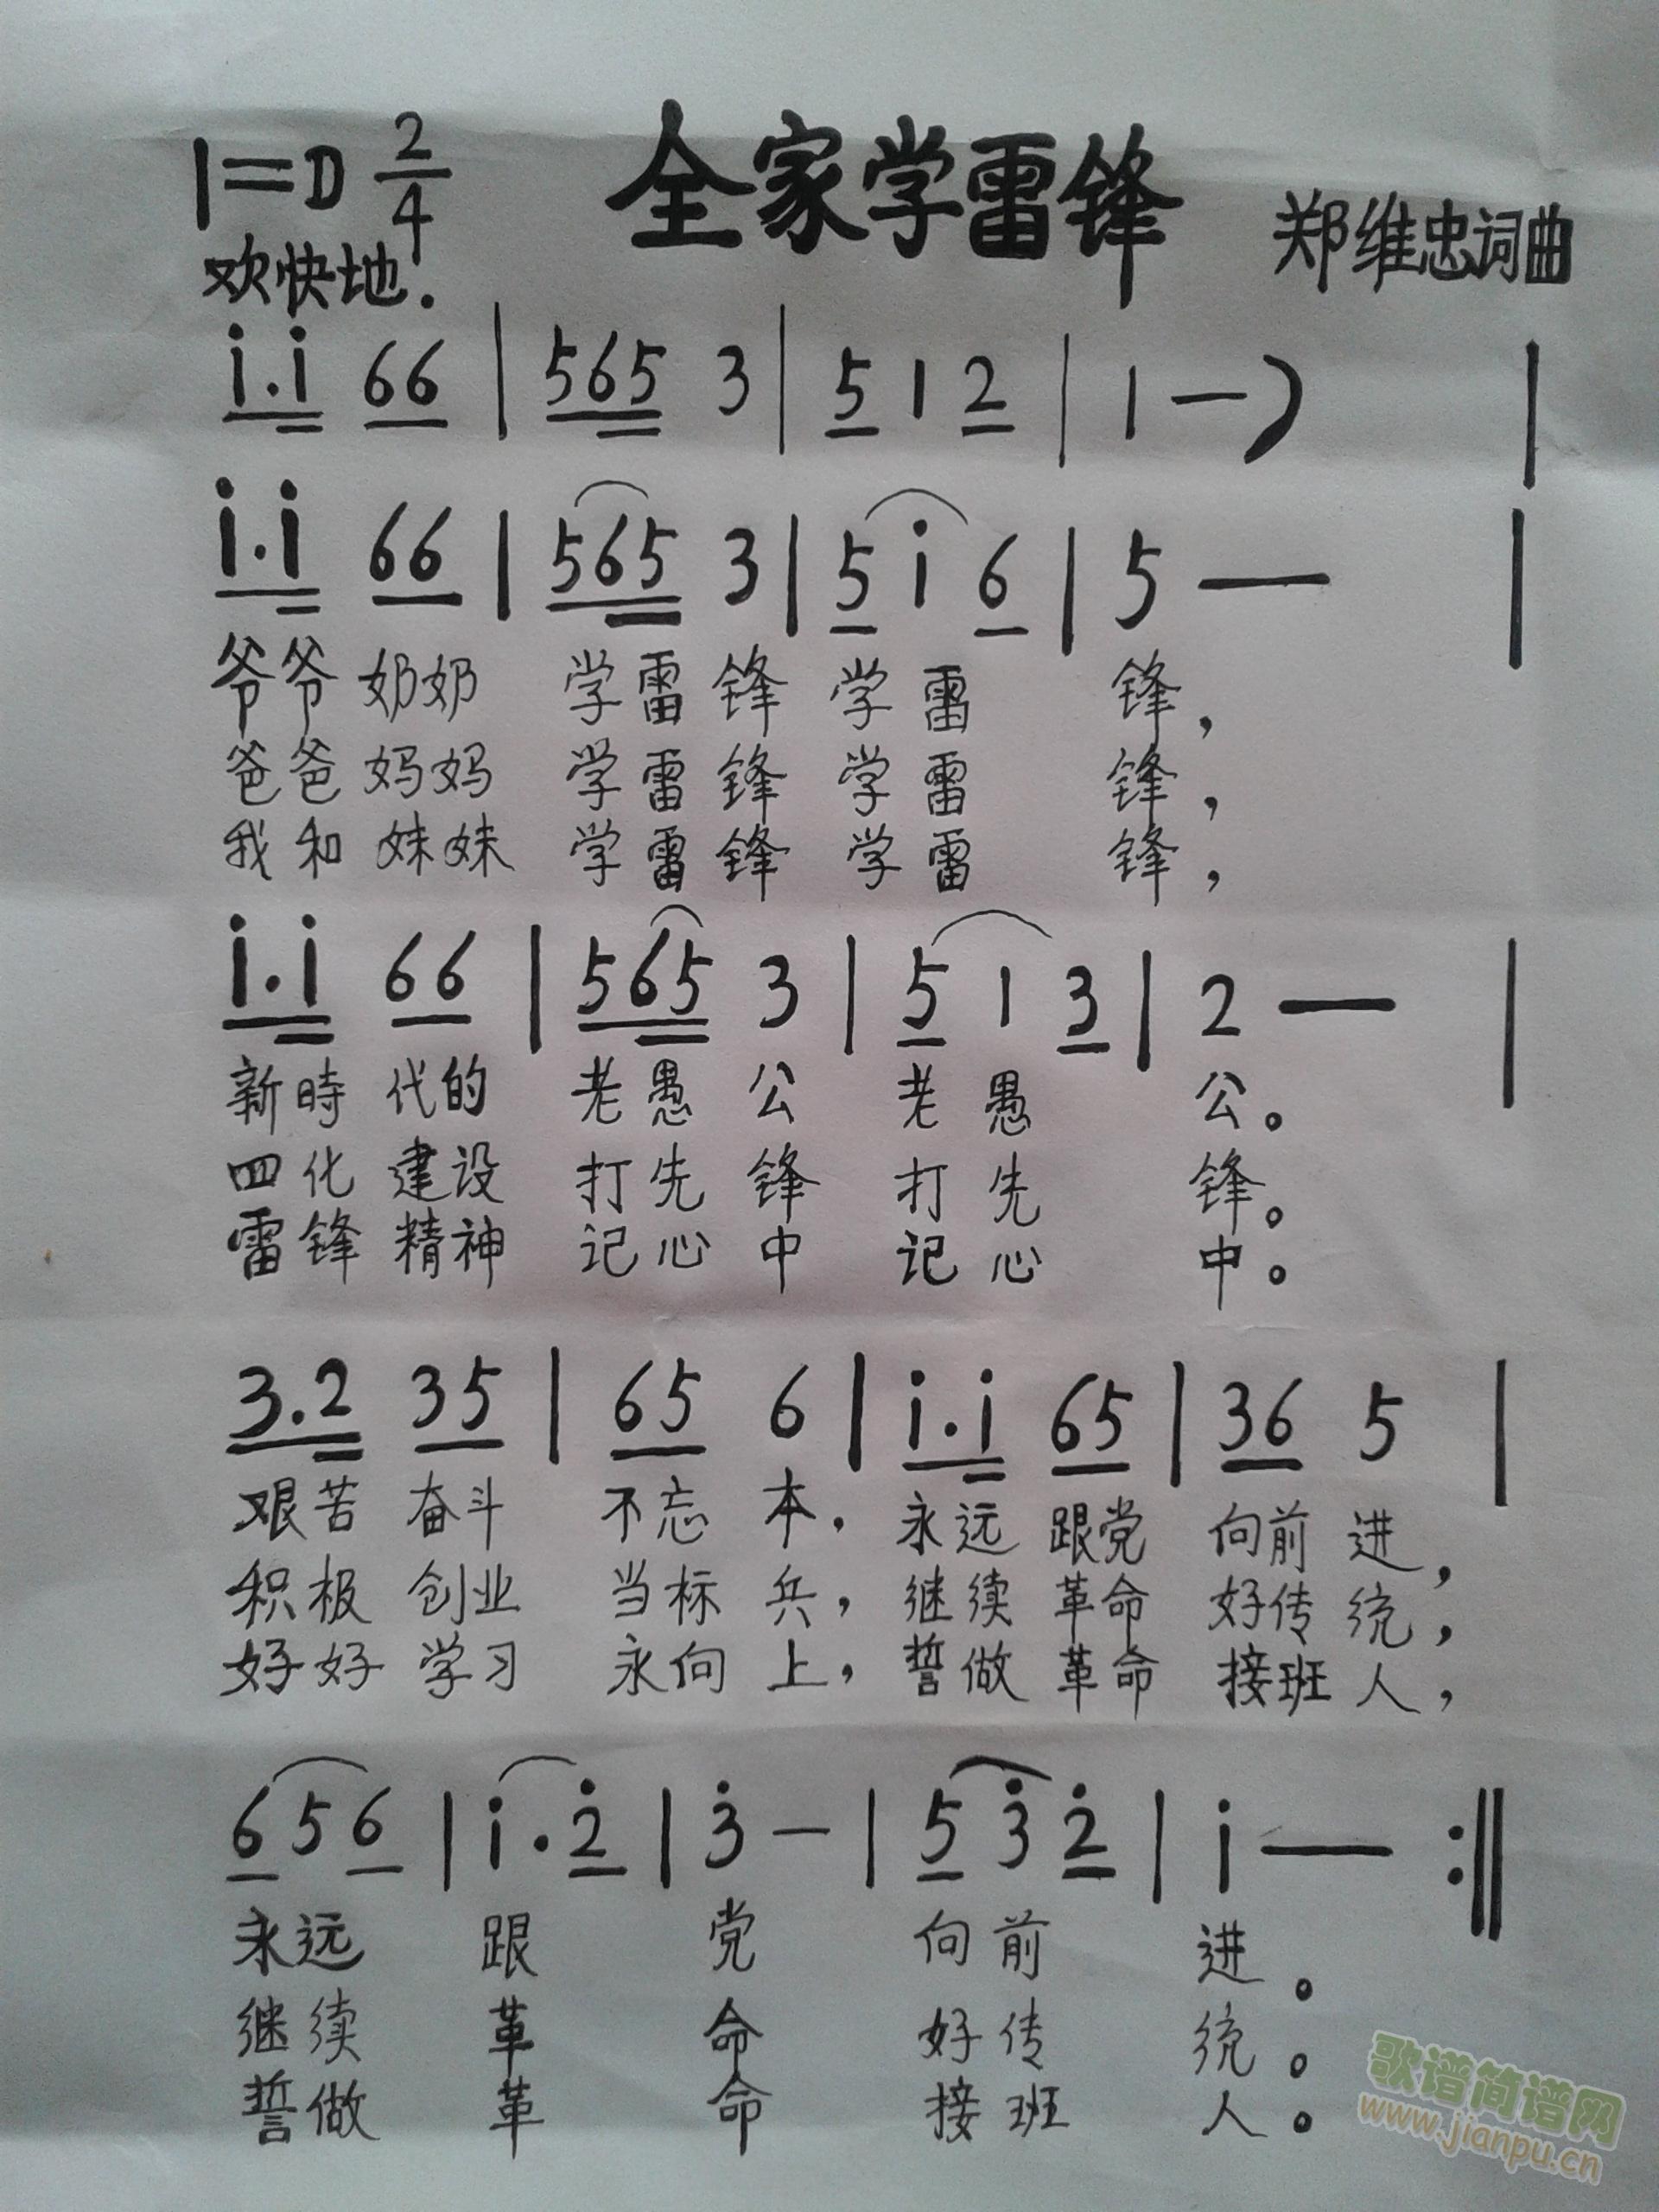 1=D 2/4 全家学雷锋 郑维忠词曲
欢快地.
i.i 66 | 565 3 | 5 1 2 | 1 — ) |
i.i 66 | 565 3 | 5 i 6 | 5 — |
爷爷 奶奶 学雷锋 学雷 锋，
爸爸 妈妈 学雷锋 学雷 锋，
我和 妹妹 学雷锋 学雷 锋，
i.i 66 | 565 3 | 5 1 3 | 2 — |
新時 代的 老愚公 老愚 公。
四化 建设 打先锋 打先 锋。
雷锋 精神 记心中 记心 中。
3.2 35 | 65 6 | i.i 65 | 36 5 |
艰苦 奋斗 不忘本，永远 跟党 向前进，
积极 创业 当标兵，继续 革命 好传统，
好好 学习 永向上，誓做 革命 接班人，
6 5 6 | i.2̇ | 3̇ — | 5 3̇ 2̇ | i — :||
永远 跟 党 向前 进。
继续 革 命 好传 统。
誓做 革 命 接班 人。
歌谱简谱网
www.jianpu.cn